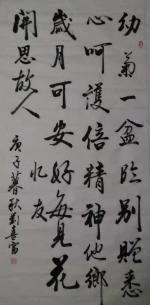 幼菊一盆临别赠悉
心呵護倍精神他鄉
歲月可安好每見花
開思故人
忆友
庚子暮秋刘喜富